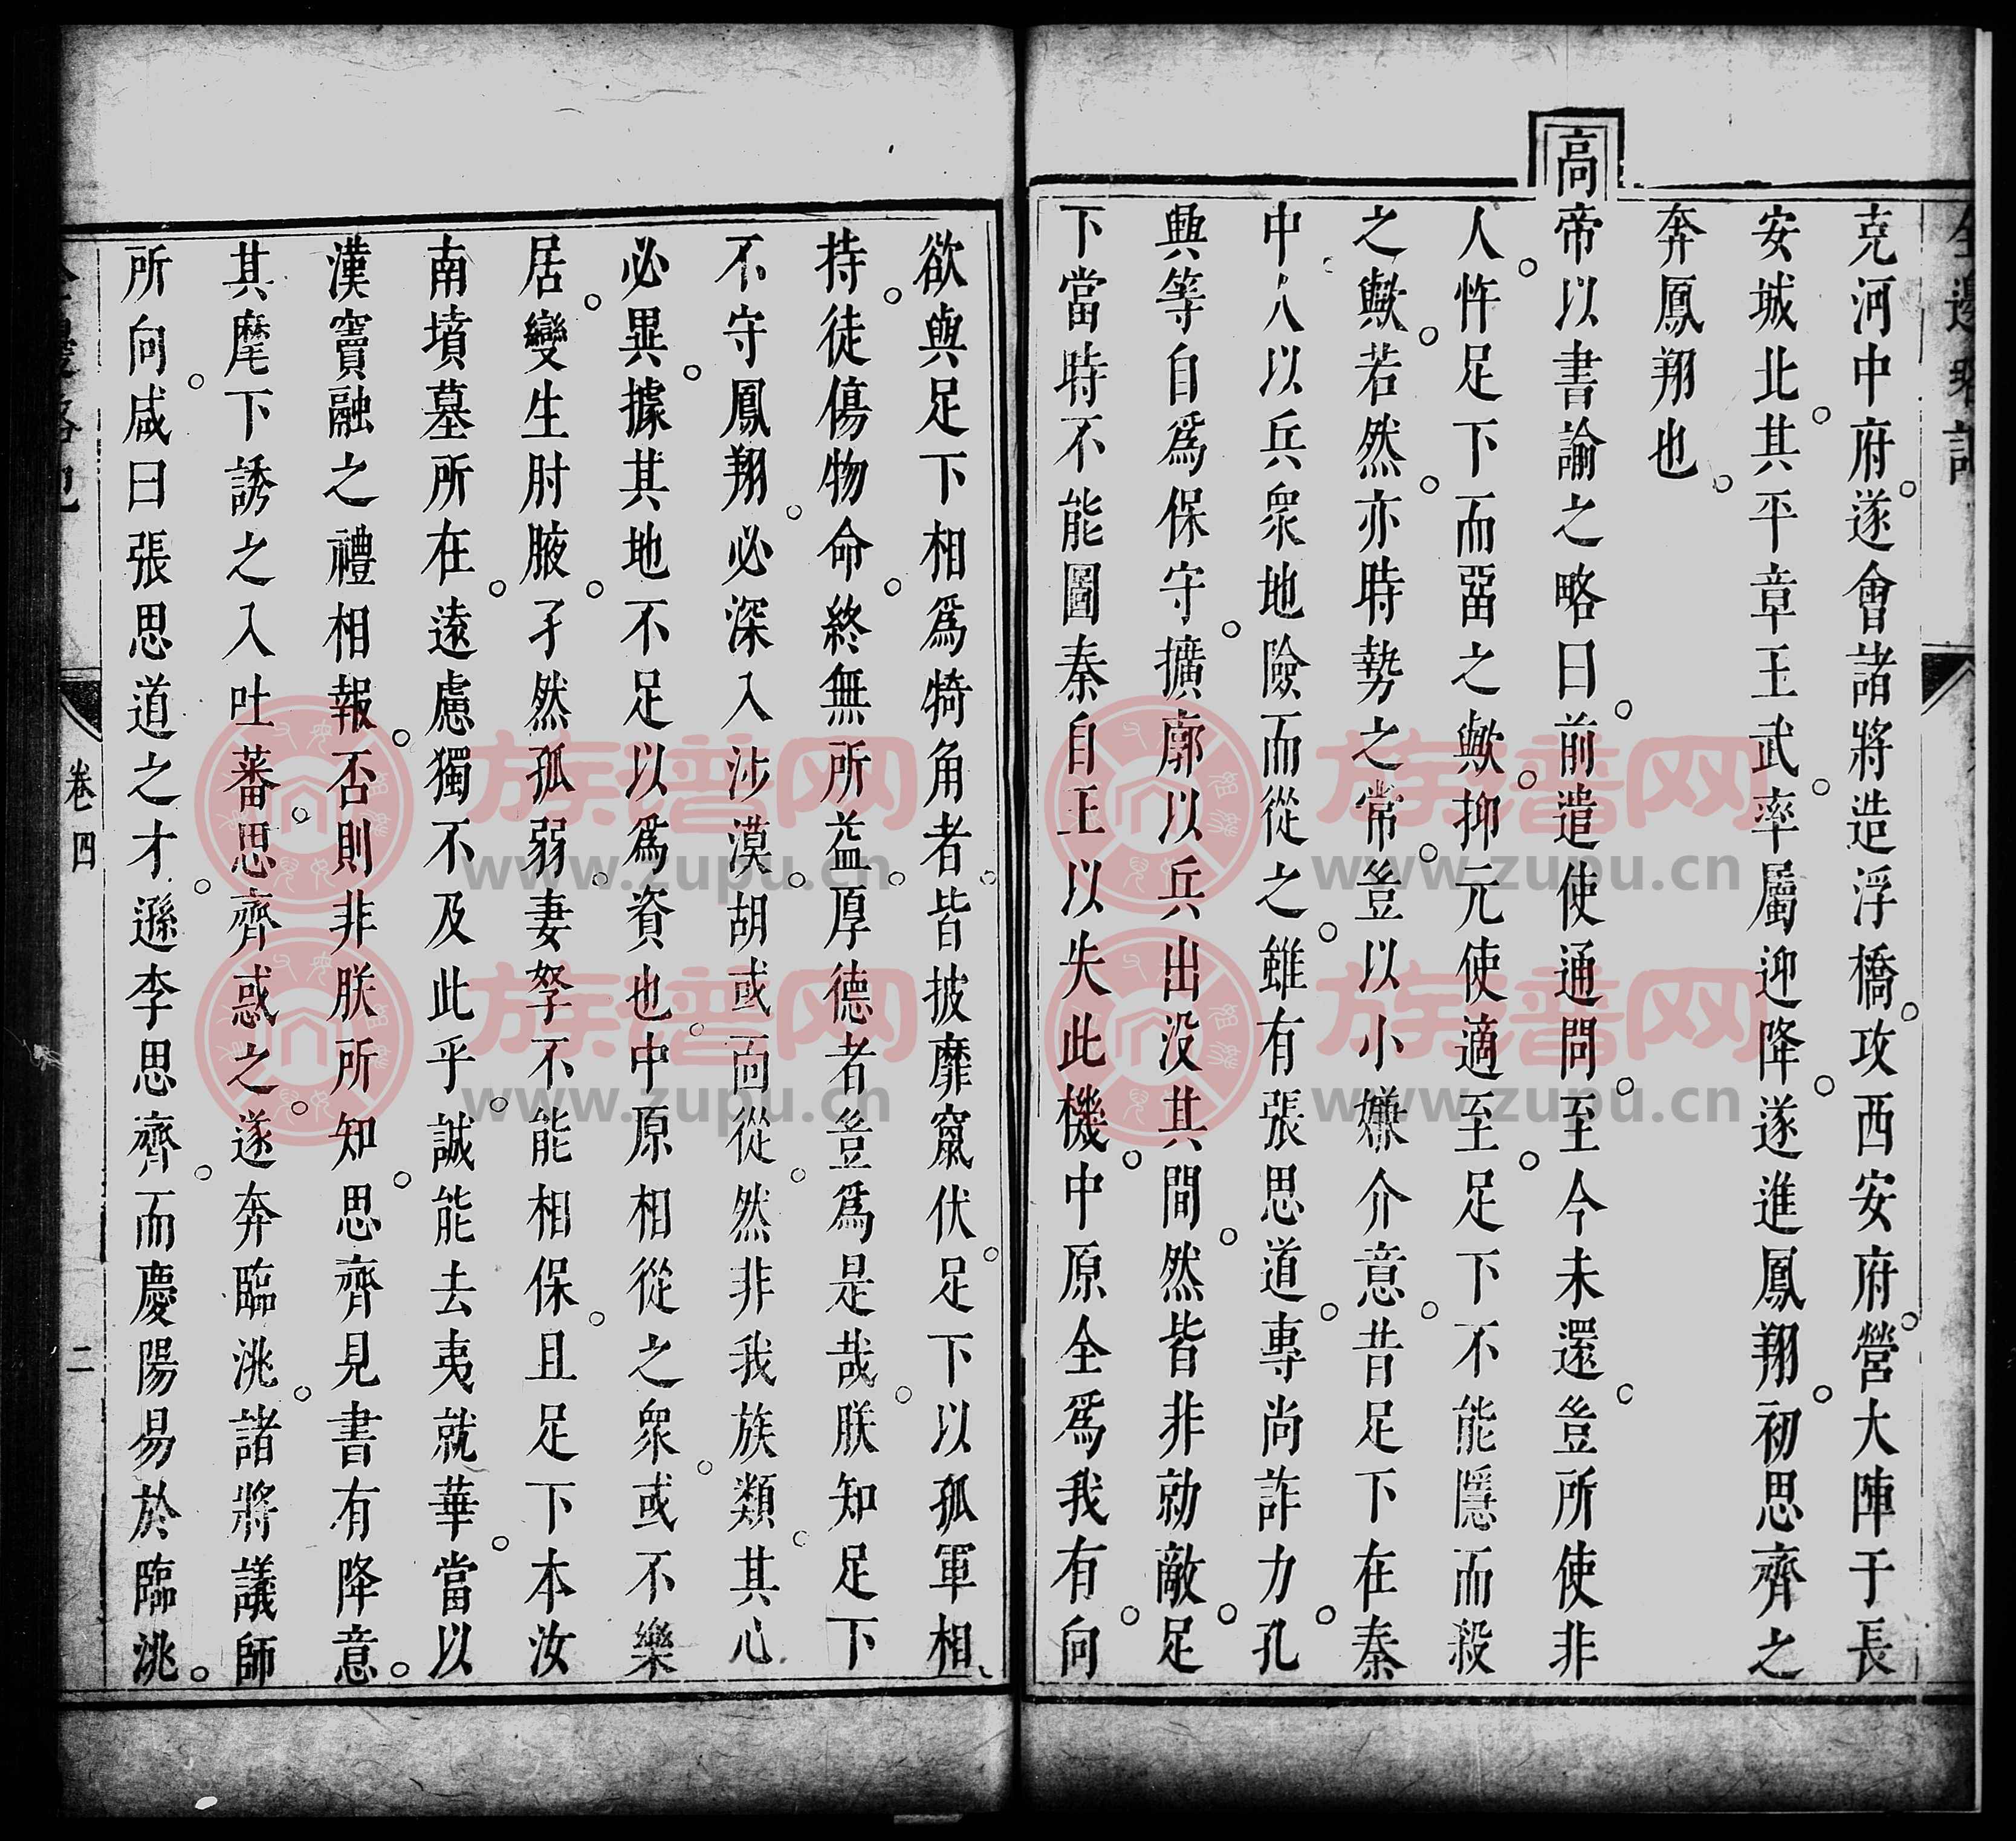 克河中府。遂會諸將造浮橋。攻西安府。營大陣于長
安城北。其平章王武。率屬迎降。遂進鳳翔。初思齊之
奔鳳翔也。
高帝以書諭之略曰。前遣使通問。至今未還。豈所使非
人。忤足下而畱之歟。抑元使適至。足下不能隱而殺
之歟。若然。亦時勢之常。豈以小嫌介意。昔足下在秦
中。人以兵衆地險而從之。雖有張思道。專尚詐力。孔
興等自爲保守。擴廓以兵出没其間。然皆非勍敵。足
下當時不能圖秦自王以失此機。中原全爲我有。向
欲與足下相爲犄角者。皆披靡竄伏。足下以孤軍相
持。徒傷物命。終無所益。厚德者豈爲是哉。朕知足下
不守鳳翔。必深入沙漠。胡或面從。然非我族類。其心
必異。據其地不足以爲資也。中原相從之衆。或不樂
居。變生肘腋。孑然孤弱。妻孥不能相保。且足下本汝
南墳墓所在。遠慮獨不及此乎。誠能去夷就華。當以
漢竇融之禮相報。否則非朕所知。思齊見書有降意。
其麾下誘之入吐蕃。思齊惑之。遂奔臨洮。諸將議師
所向。咸曰張思道之才。遜李思齊。而慶陽易於臨洮。
卷四
二
族譜网
www.zupu.cn
族譜网
www.zupu.cn
族譜网
www.zupu.cn
族譜网
www.zupu.cn